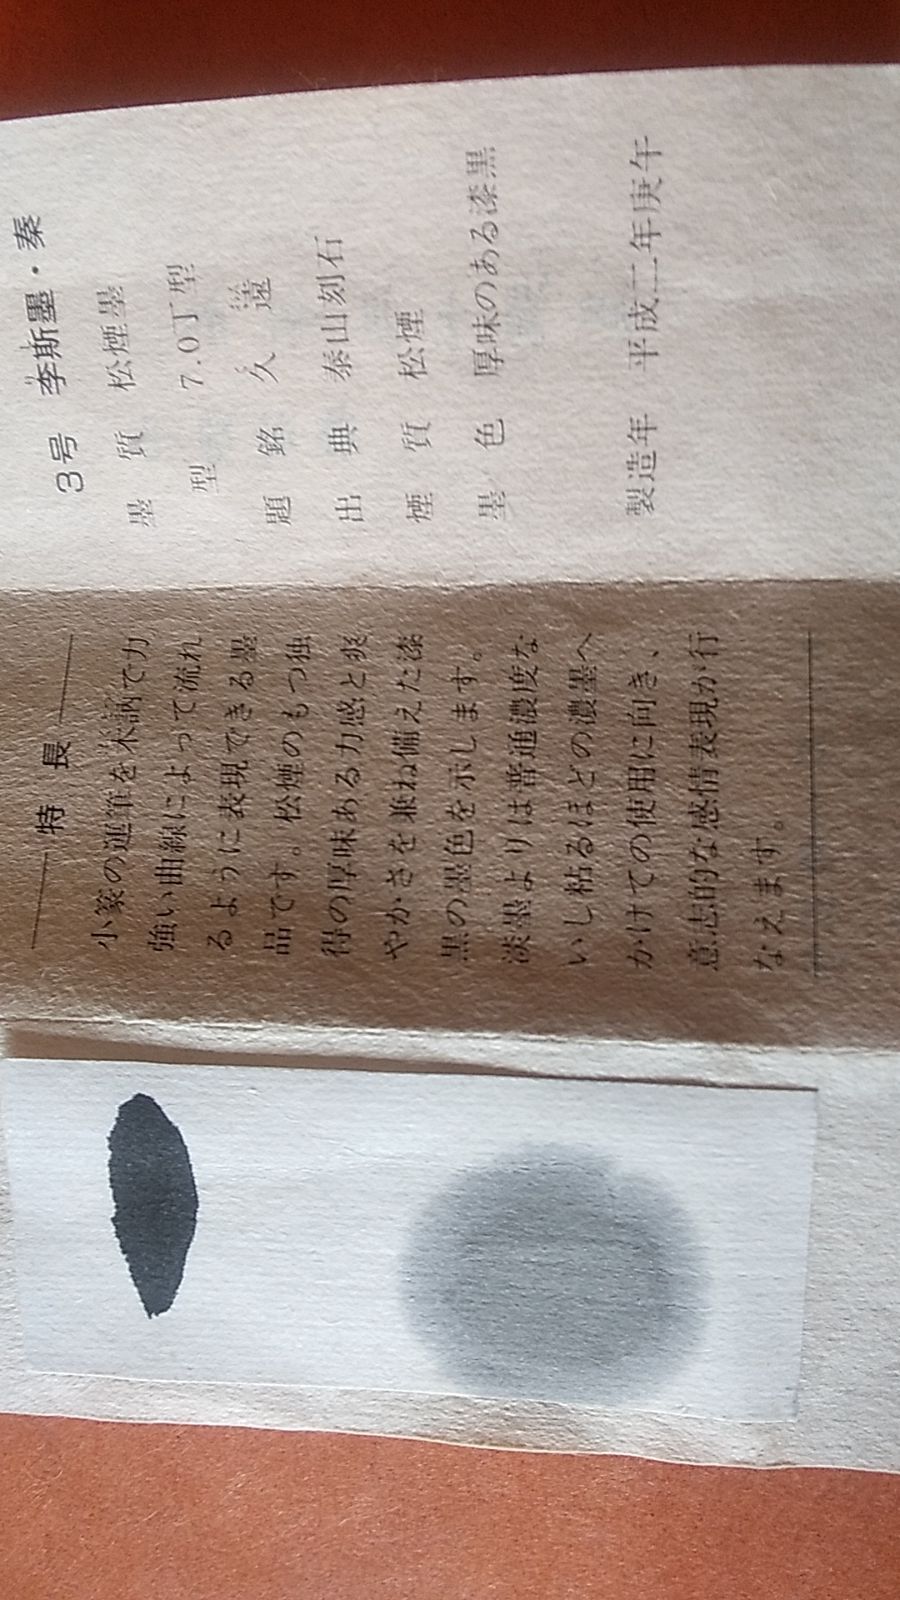 3号 李斯墨・秦
墨質 松煙墨
型 7.0丁型
題銘 久遠
出典 泰山刻石
煙質 松煙
墨色 厚味のある漆黒
製造年 平成二年庚午
特長
小篆の運筆を木訥で力
強い曲線によって流れ
るように表現できる墨
品です。松煙のもつ独
得の厚味ある力感と爽
やかさを兼ね備えた漆
黒の墨色を示します。
淡墨よりは普通濃度な
いし粘るほどの濃墨へ
かけての使用に向き、
意志的な感情表現が行
なえます。